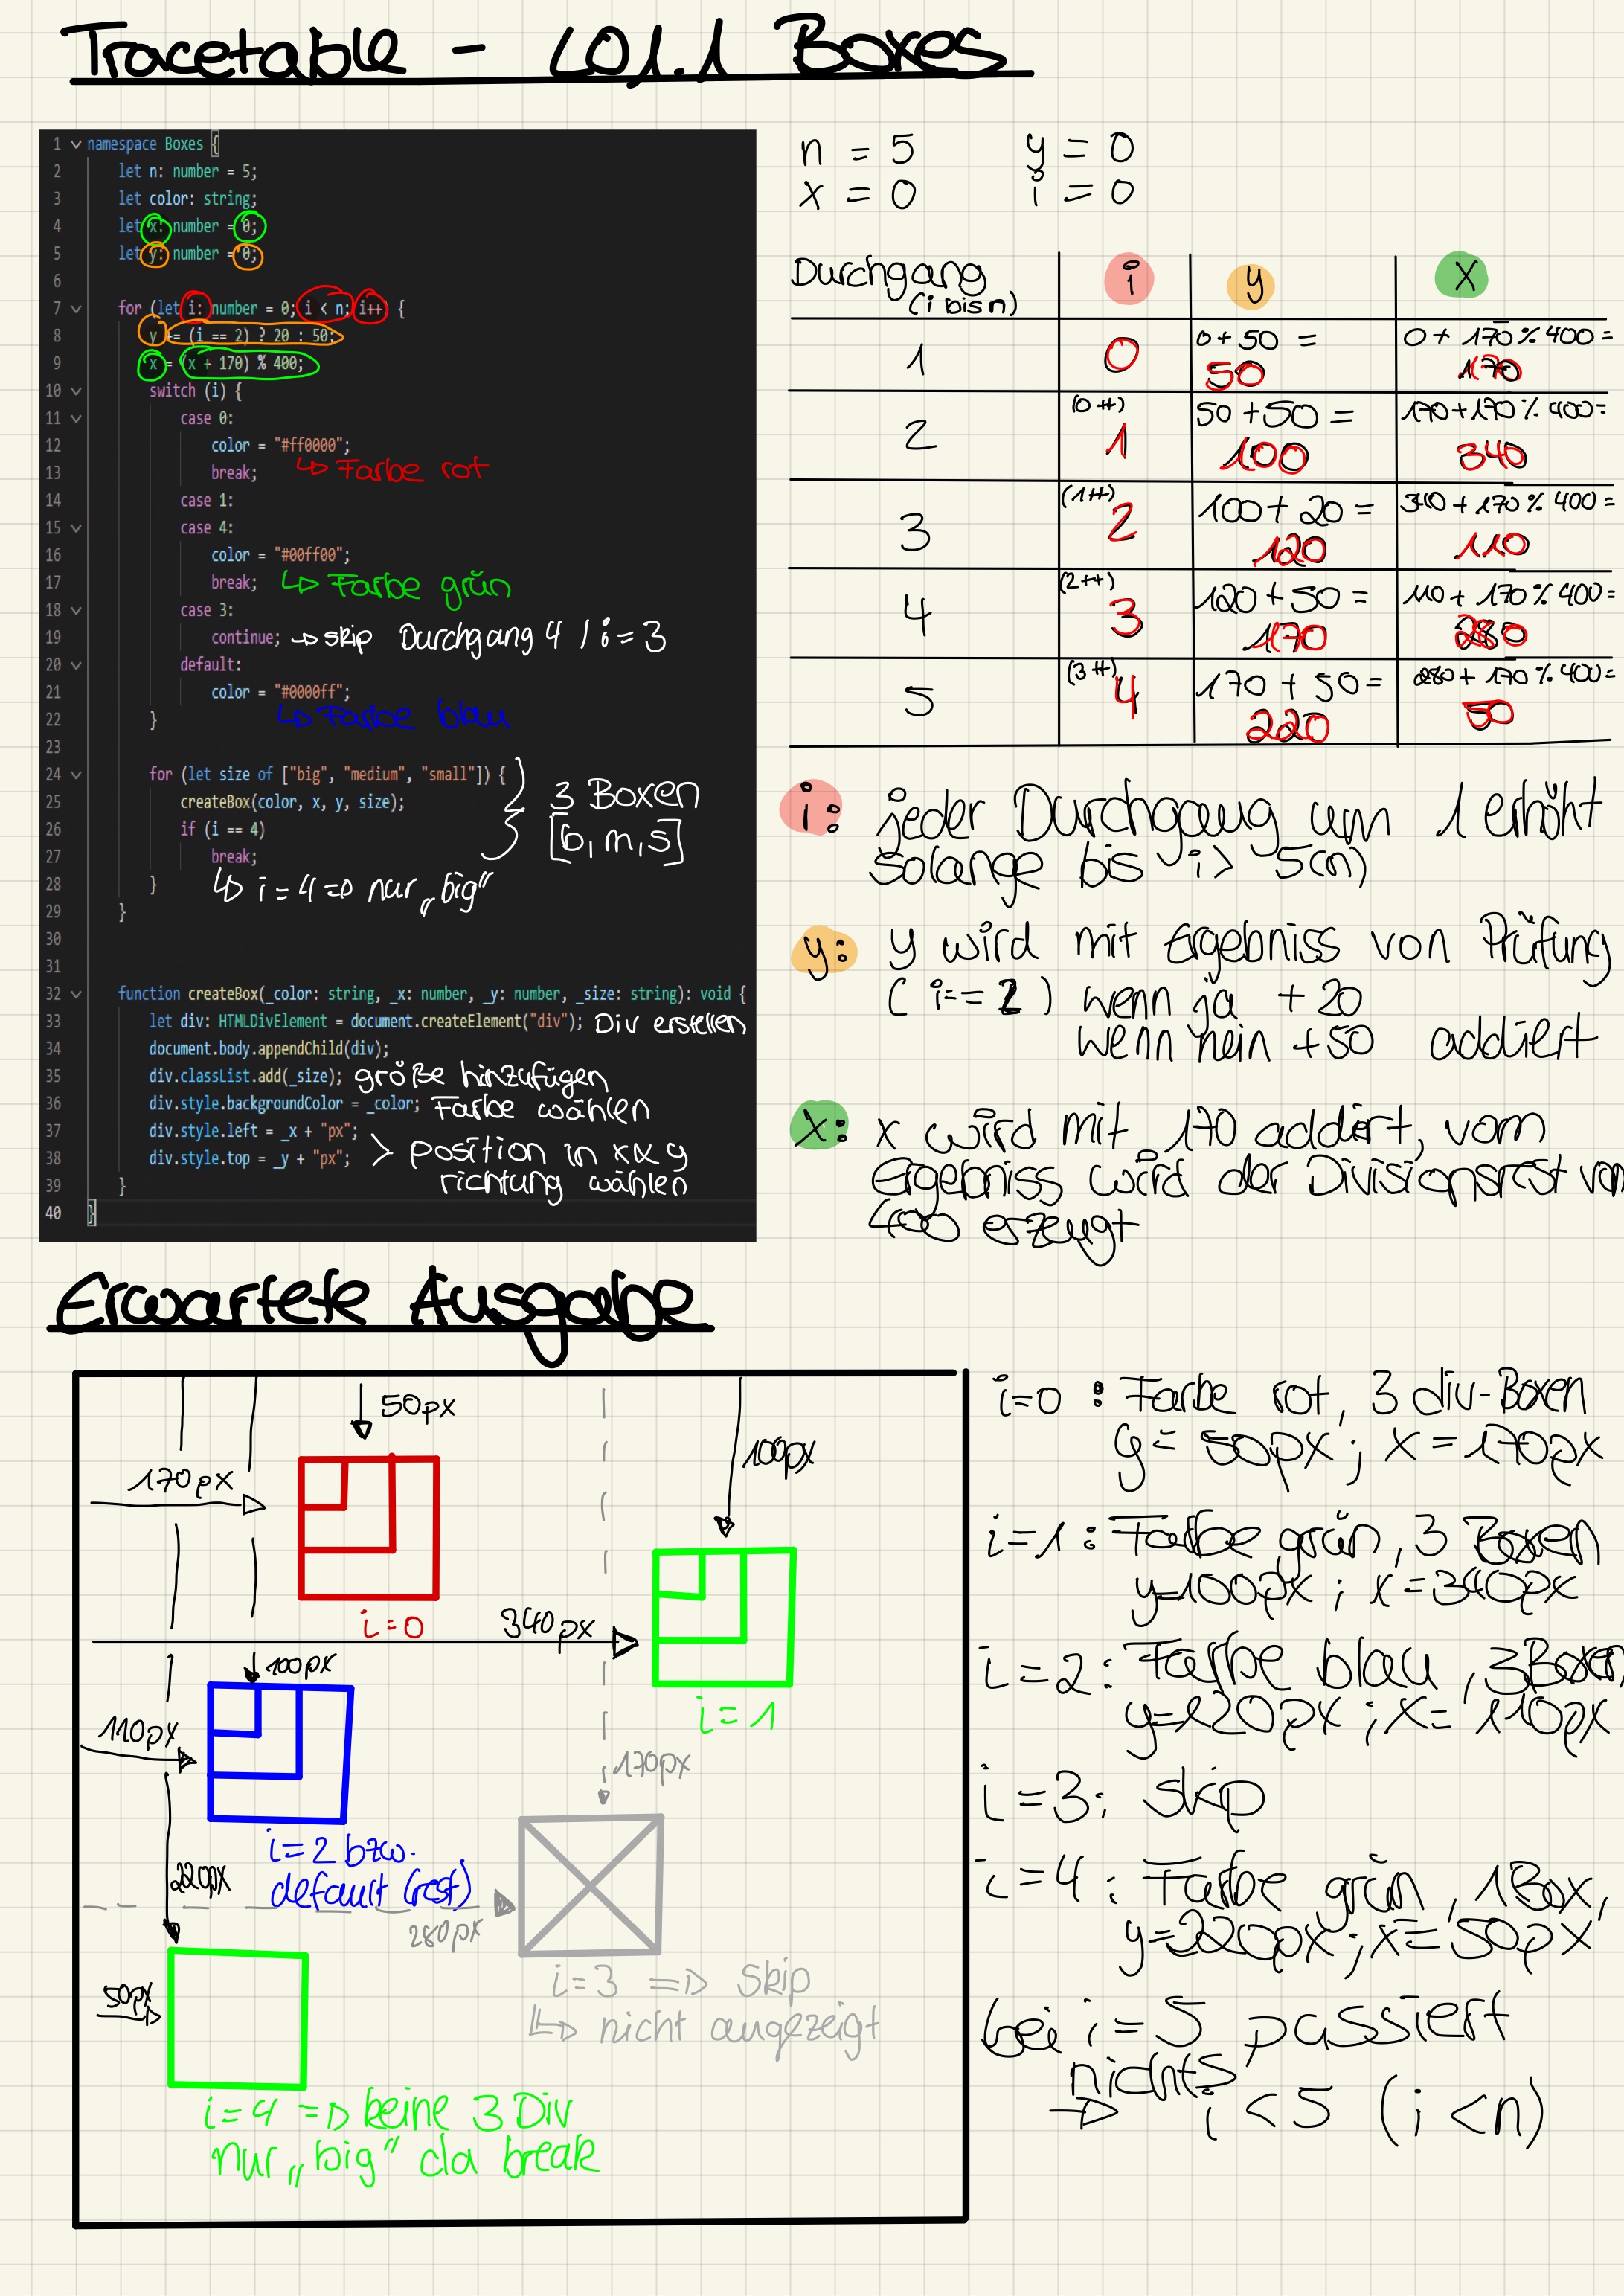 Tracetable - L01.1 Boxes
1 namespace Boxes {
2 let n: number = 5;
3 let color: string;
4 let x: number = 0;
5 let y: number = 0;
6
7 for (let i: number = 0; i < n; i++) {
8 y += (i == 2) ? 20 : 50;
9 x = (x + 170) % 400;
10 switch (i) {
11 case 0:
12 color = "#ff0000";
13 break; ↳ Farbe rot
14 case 1:
15 case 4:
16 color = "#00ff00";
17 break; ↳ Farbe grün
18 case 3:
19 continue; → skip Durchgang 4 / i = 3
20 default:
21 color = "#0000ff";
22 } ↳ Farbe blau
23
24 for (let size of ["big", "medium", "small"]) {
25 createBox(color, x, y, size);
26 if (i == 4)
27 break;
28 } ↳ i = 4 => nur „big"
29 }
3 Boxen
[b,m,s]
30
31
32 function createBox(_color: string, _x: number, _y: number, _size: string): void {
33 let div: HTMLDivElement = document.createElement("div"); Div erstellen
34 document.body.appendChild(div);
35 div.classList.add(_size); größe hinzufügen
36 div.style.backgroundColor = _color; Farbe wählen
37 div.style.left = _x + "px";
38 div.style.top = _y + "px"; > position in x & y
39 } richtung wählen
40 }
n = 5 y = 0
x = 0 i = 0
Durchgang i y x
(i bis n)
1 0 0 + 50 = 0 + 170 % 400 =
50 170
2 (0++) 50 + 50 = 170 + 170 % 400 =
1 100 340
3 (1++) 100 + 20 = 340 + 170 % 400 =
2 120 110
4 (2++) 120 + 50 = 110 + 170 % 400 =
3 170 280
5 (3++) 170 + 50 = 280 + 170 % 400 =
4 220 50
i: jeder Durchgang um 1 erhöht
solange bis i > 5(n)
y: y wird mit Ergebniss von Prüfung
(i == 2) wenn ja + 20
wenn nein + 50 addiert
x: x wird mit 170 addiert, vom
Ergebniss wird der Divisionsrest von
400 erzeugt
Erwartete Ausgabe
50px
170px
100px
i=0
340px
100px
i = 1
110px
170px
i=2 bzw.
default (rest)
220px
280px
50px
i=3 => skip
↳ nicht angezeigt
i=4 => keine 3 Div
nur „big" da break
i=0 : Farbe rot, 3 div-Boxen
y = 50px ; x = 170px
i=1 : Farbe grün, 3 Boxen
y=100px ; x = 340px
i=2 : Farbe blau, 3 Boxen
y=120px ; x= 110px
i=3: skip
i=4 : Farbe grün, 1 Box,
y=220px ; x=50px
bei i=5 passiert
nichts
→ i < 5 (i < n)